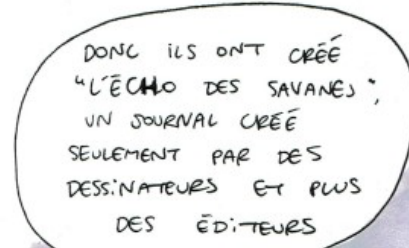 DONC ILS ONT CRÉÉ
"L'ÉCHO DES SAVANES",
UN JOURNAL CRÉÉ
SEULEMENT PAR DES
DESSINATEURS ET PLUS
DES ÉDITEURS